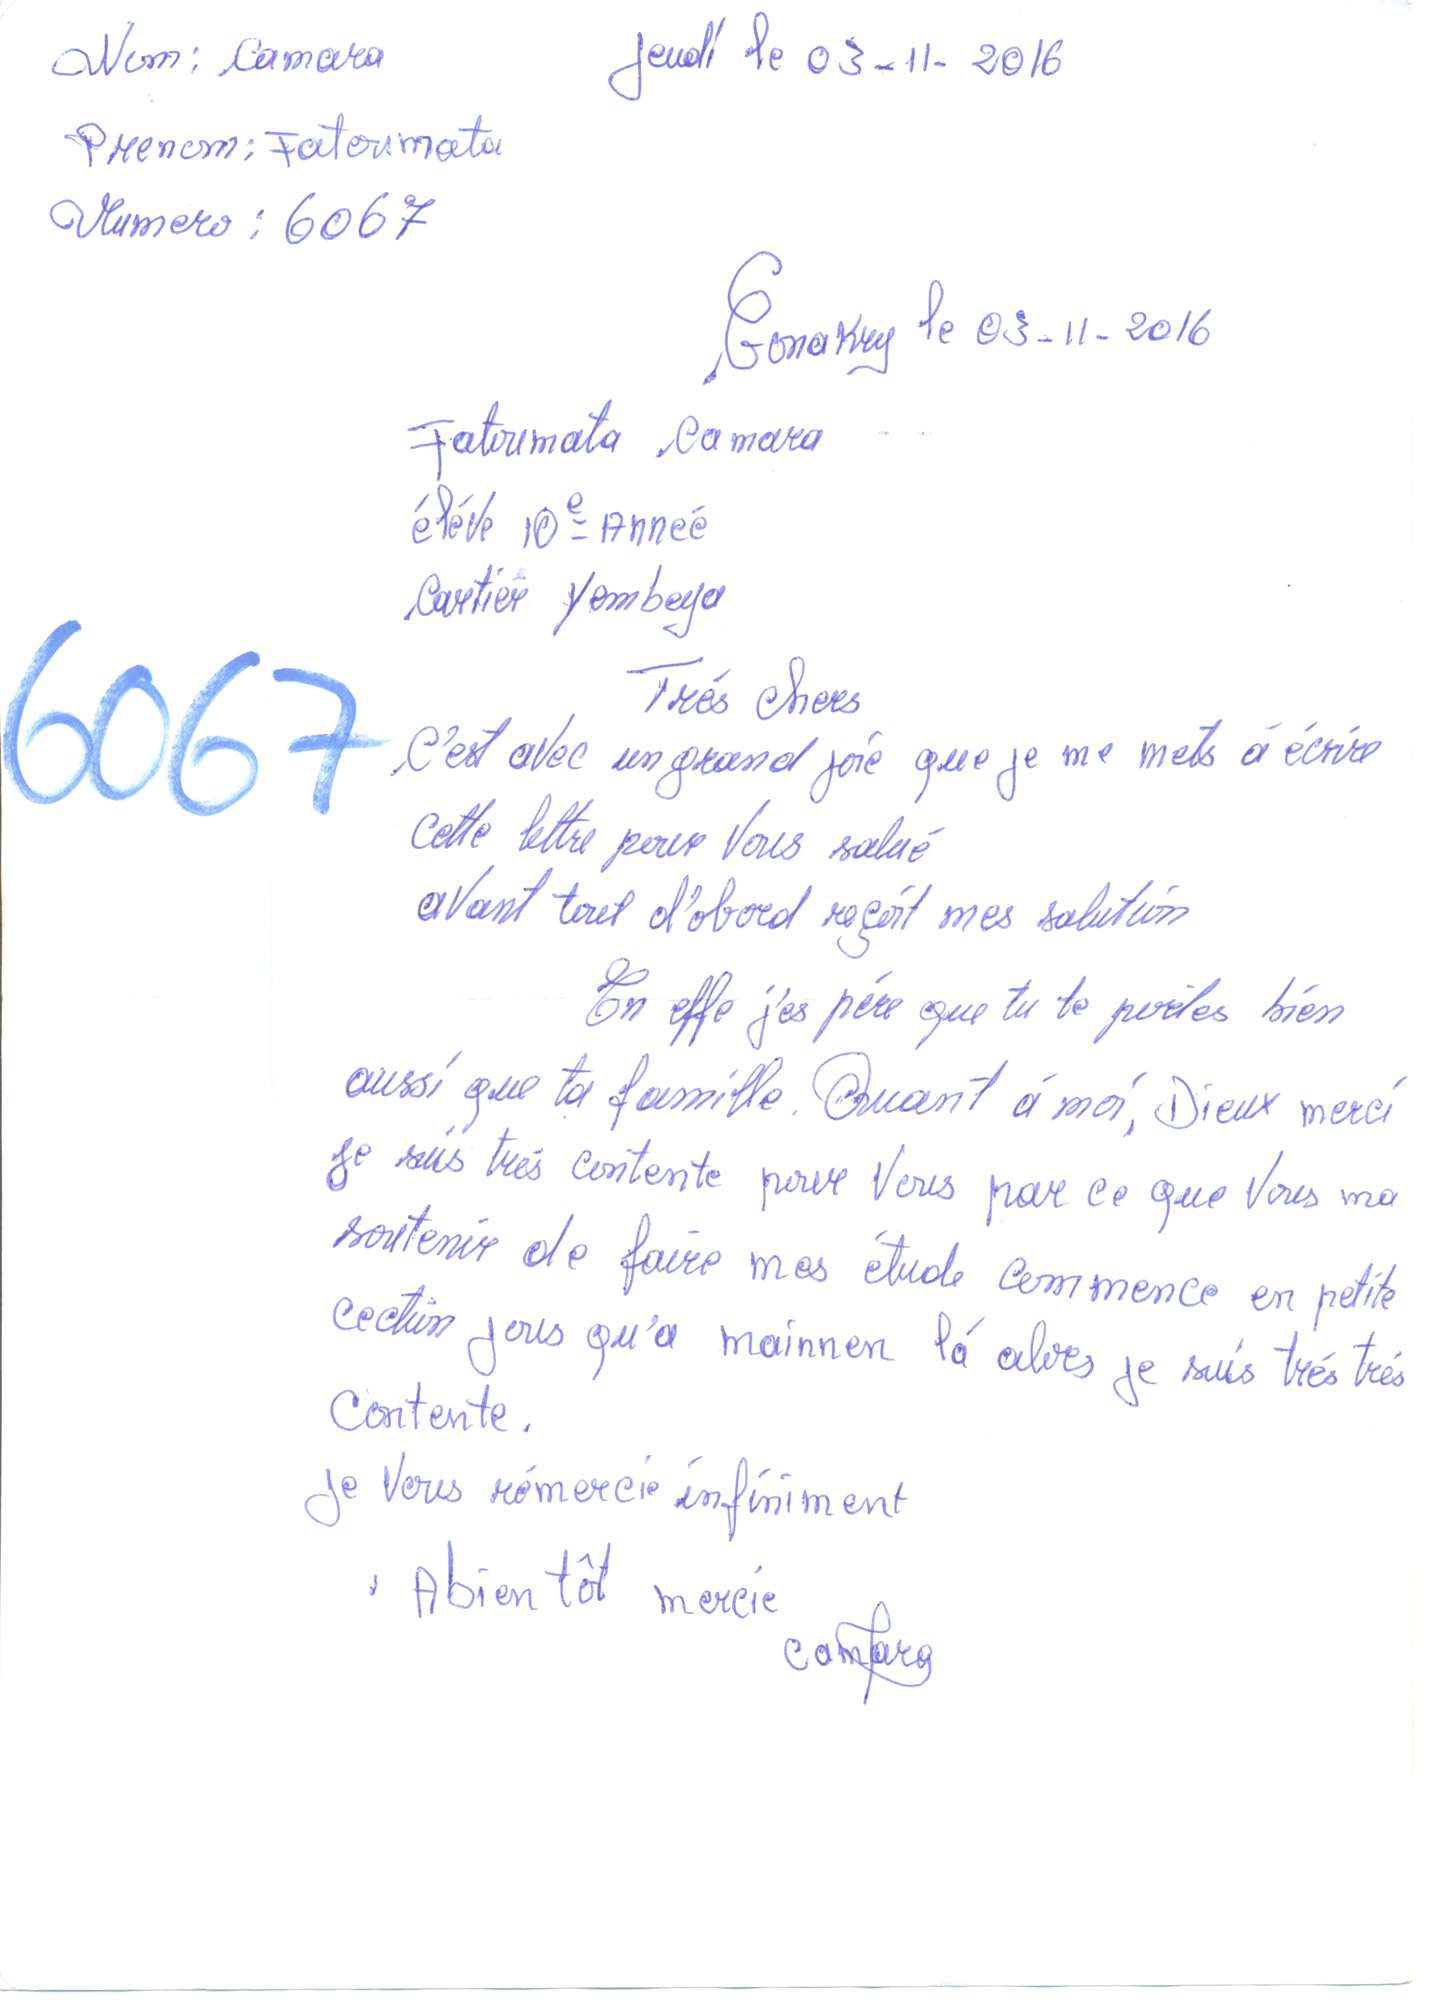 Nom: Camara Jeudi le 03-11-2016
Prenom: Fatoumata
Numero: 6067
Conakry le 03-11-2016
Fatoumata Camara
éléve 10e Anneé
Cartier Yembeya
6067
Trés chers
C'est avec un grand joie que je me mets á écrire
cette lettre pour Vous salué
avant tout d'abord reçoit mes salution
En effe j'es pére que tu te portes bien
aussi que ta famille. Quant á moi, Dieux merci
je suis trés contente pour Vous par ce que Vous ma
soutenir de faire mes étude commence en petite
cection jous qu'a mainnen lá alors je suis trés trés
contente.
Je Vous rémercie infiniment
Abien tôt mercie
camara